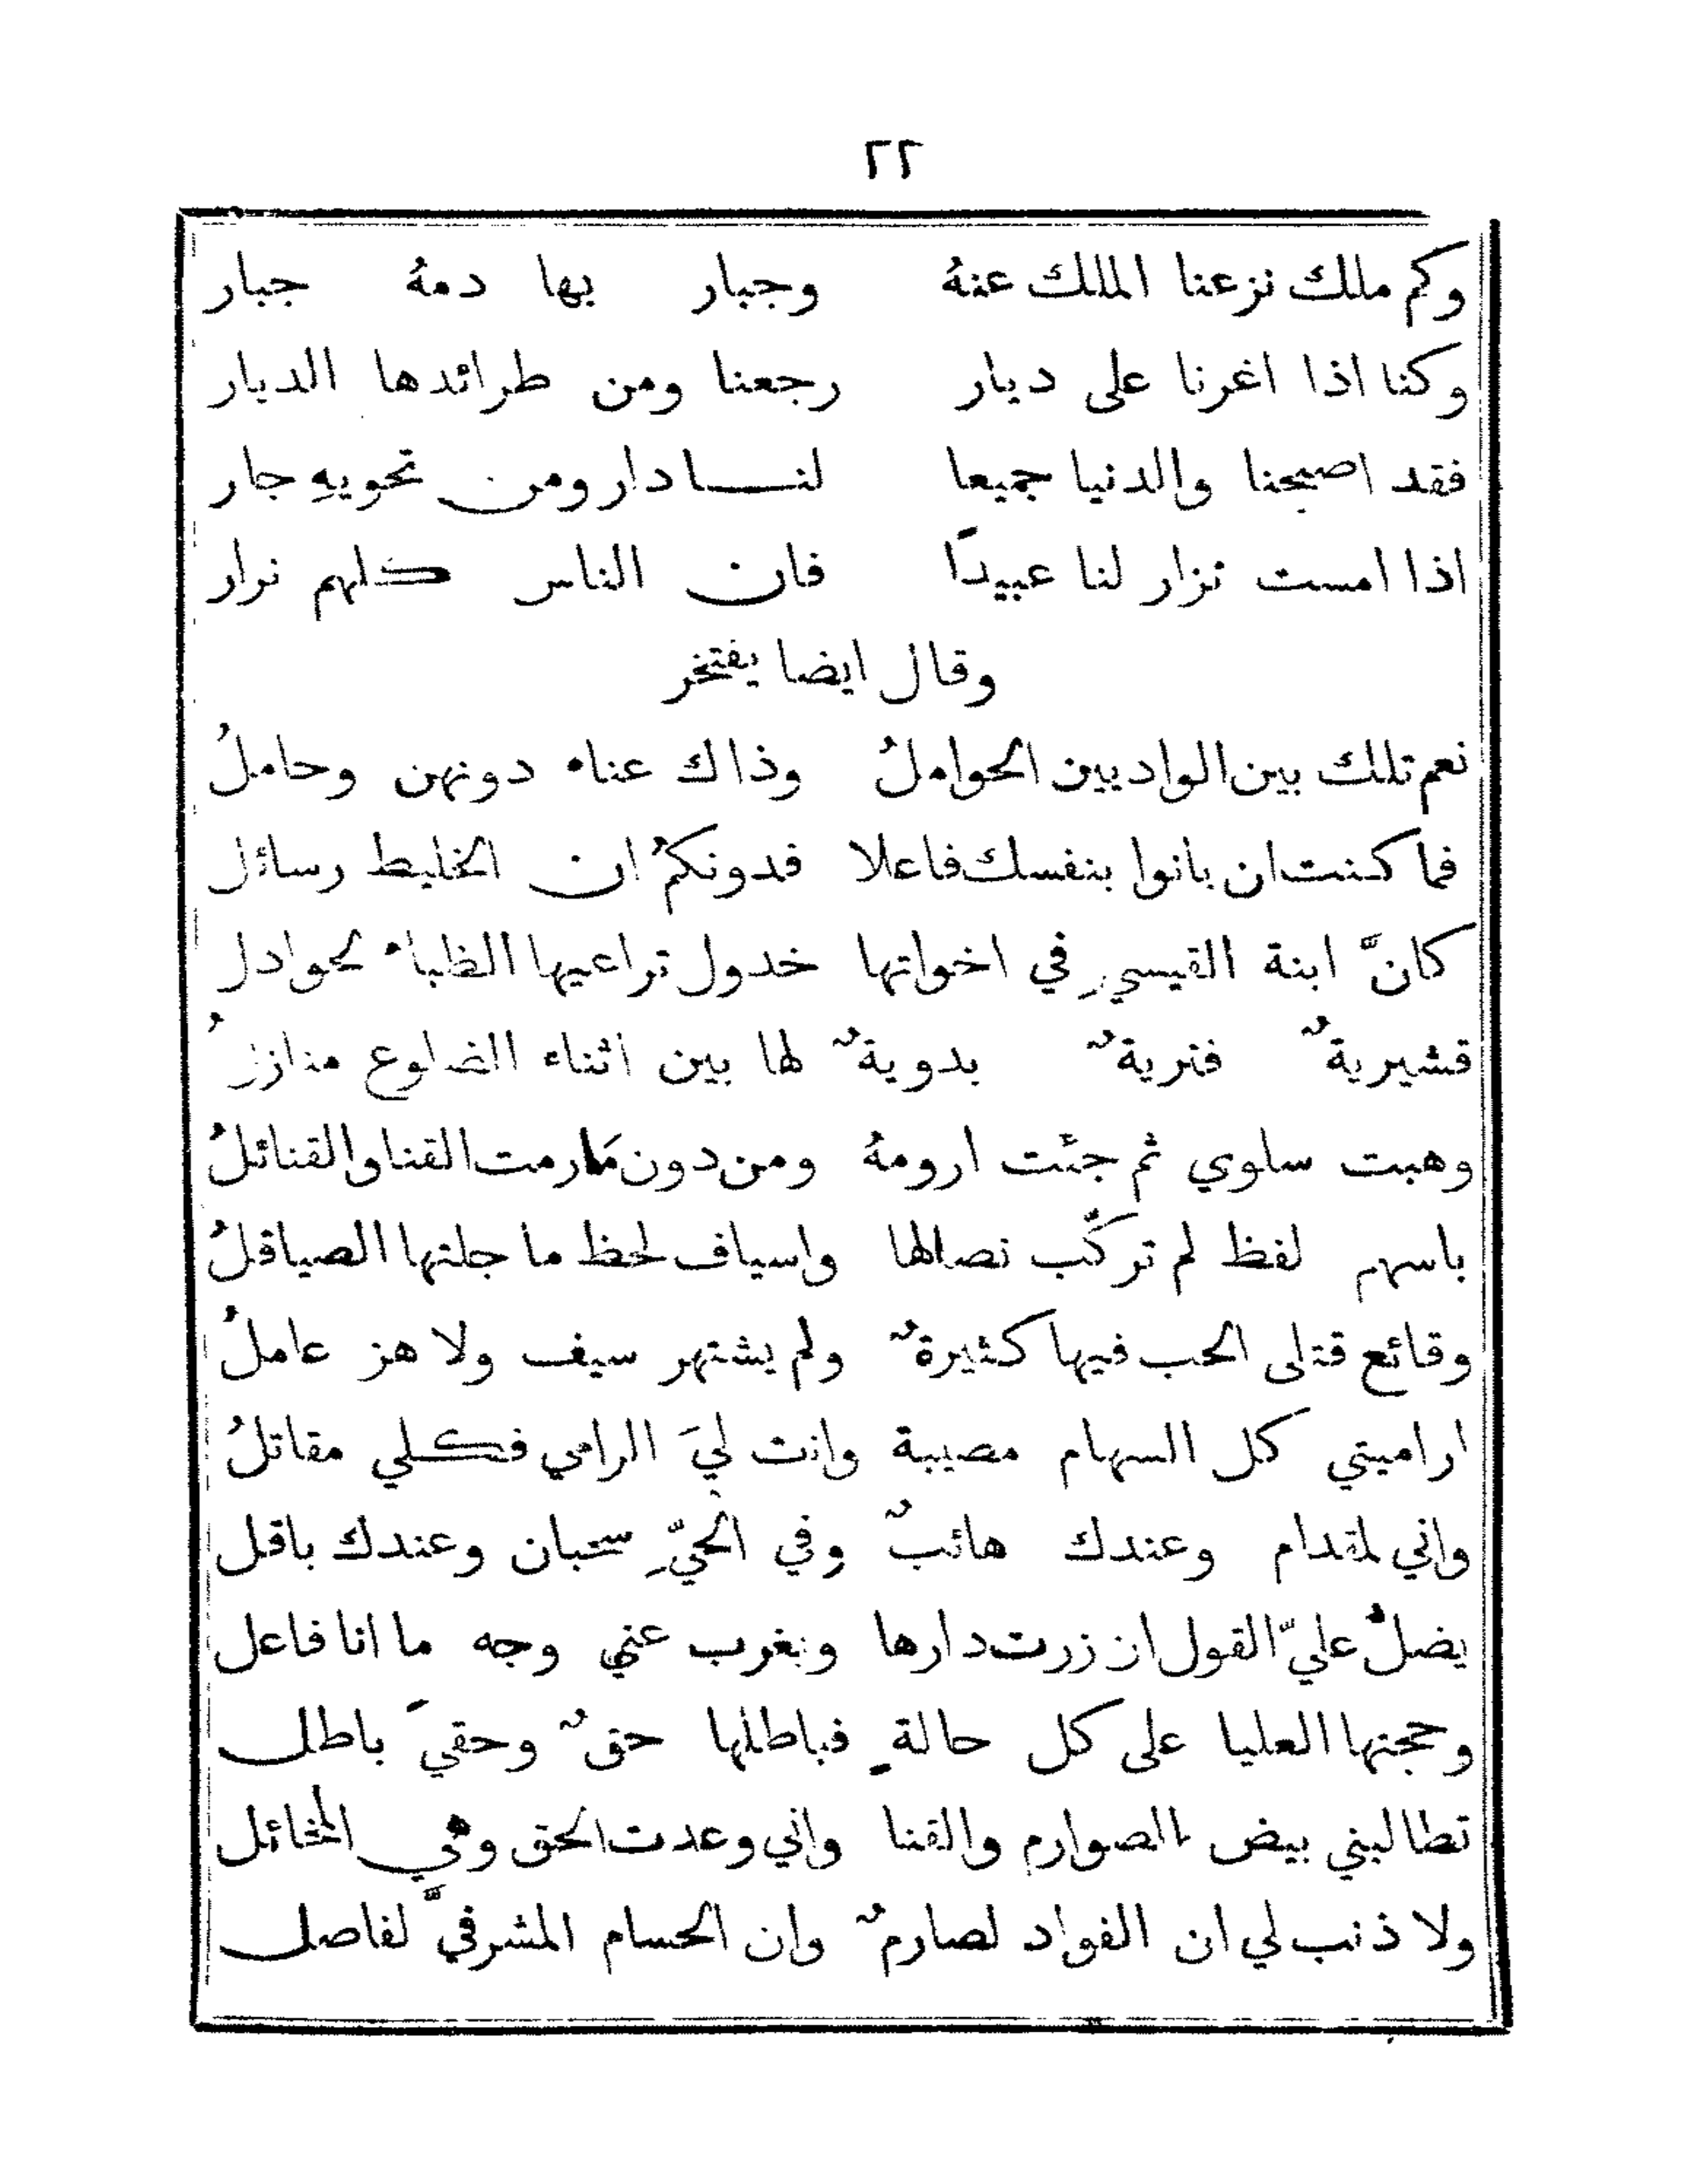 ٢٢
وكم ملك نزعنا الملك عنهُ وجبار بها دمهُ جبار
وكنا اذا اغرنا على ديار رجعنا ومن طرائدها الديار
فقد اصبحنا والدنيا جميعا لنا دار ومن تحويهِ جار
اذا امست نزار لنا عبيدًا فان الناس كلهم نزار
وقال ايضا يفتخر
نعم تلك بين الواديين الحواملُ وذاك عناء دونهن وحاملُ
فما كنت ان بانوا بنفسك فاعلا فدونكمُ ان الخليط رسائل
كانَّ ابنة القيسيِ في اخواتها خدول تراعيها الظباء لحوادل
قشيرية ٌ فترية ٌ بدوية ٌ لها بين اثناء الضلوع منازلُ
وهبت سلوي ثم جئت ارومهُ ومن دون مَا رمت القنا والقنائلُ
باسهم لفظ لم تركَّب نصالها واسياف لحظ ما جلتها الصياقلُ
وقائع قتلى الحب فيها كثيرة ٌ ولم يشتهر سيف ولا هز عاملُ
اراميتي كل السهام مصيبة وانت ليَ الرامي فكلي مقاتلُ
واني لمقدام وعندك هائبٌ وفي الحيِّ سحبان وعندك باقل
يضلُّ عليّ القول ان زرت دارها ويغرب عني وجه ما انا فاعل
وحجتها العليا على كل حالةٍ فباطلها حق ٌ وحقيَ باطل
تطالبني بيض الصوارم والقنا واني وعدت الحق وفي المخائل
ولا ذنب لي ان الفواد لصارم ٌ وان الحسام المشرفيَّ لفاصل